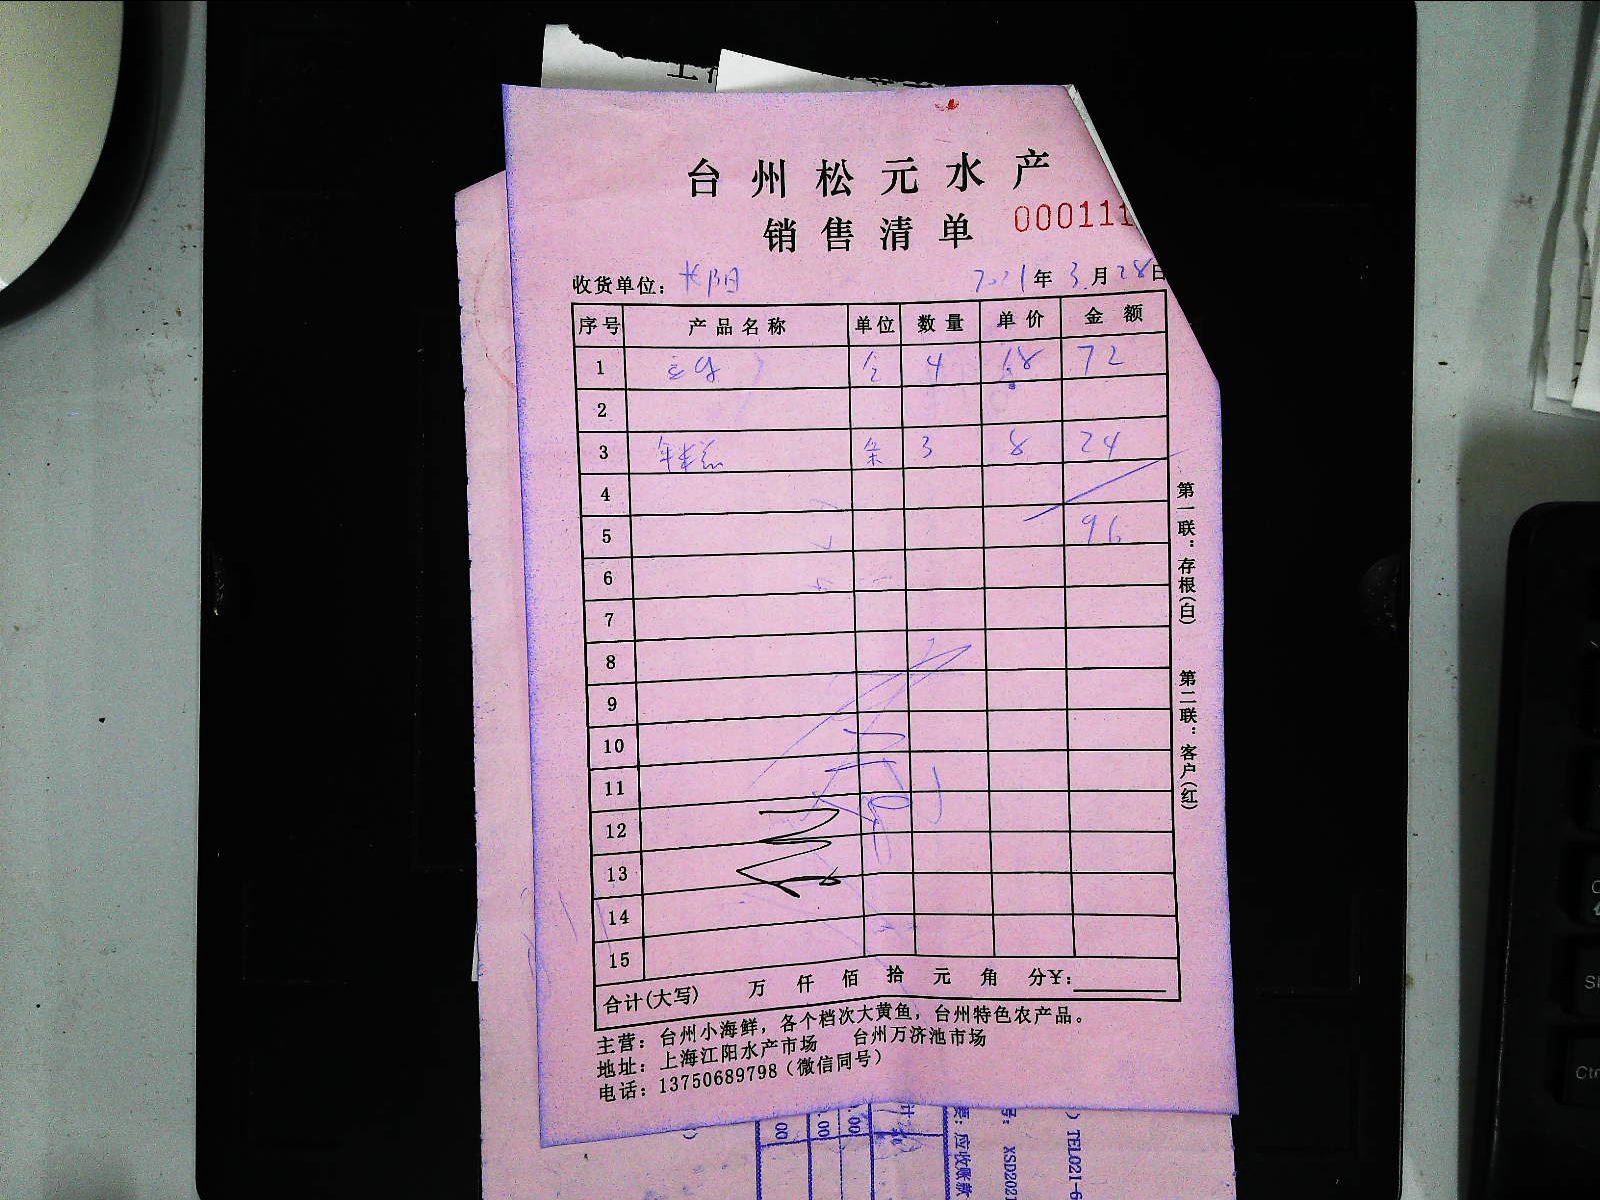 台州松元水产
销售清单 000111
收货单位： 长阳 2021年3月28日
序号 产品名称 单位 数量 单价 金额
1 4 18 72
2
3 年糕 条 3 8 24
4
5 96
6
7
8
9
10
11
12
13
14
15
合计(大写) 万 仟 佰 拾 元 角 分¥:
主营：台州小海鲜，各个档次大黄鱼，台州特色农产品。
地址：上海江阳水产市场 台州万济池市场
电话：13750689798（微信同号）
第一联：存根(白)
第二联：客户(红)
应收账款
XSD2021
TEL021-6